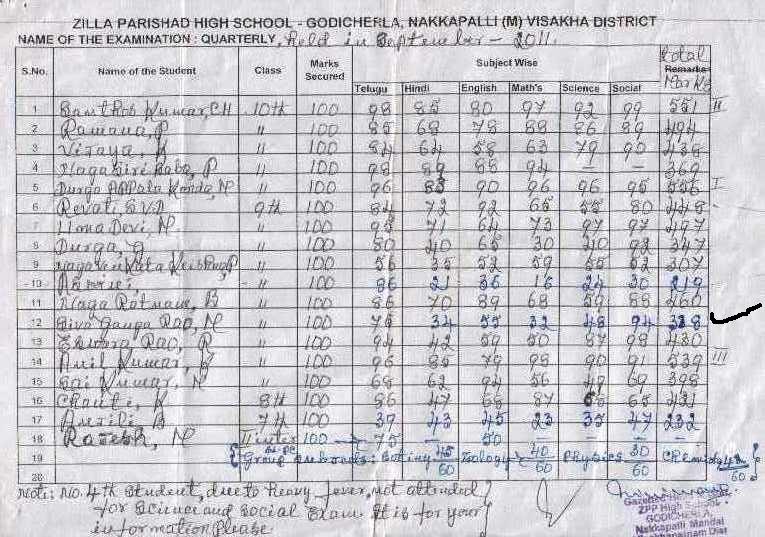 ZILLA PARISHAD HIGH SCHOOL - GODICHERLA, NAKKAPALLI (M) VISAKHA DISTRICT
NAME OF THE EXAMINATION : QUARTERLY, held in September - 2011.
S.No. Name of the Student Class Marks Secured Subject Wise Total Remarks Marks
Telugu Hindi English Math's Science Social
1 Kumar, CH 10th 100 98 85 80 97 92 99 551 II
2 Ramana, P " 100 85 68 78 88 86 89 494
3 Vijaya, " 100 84 64 58 63 79 90 438
4 Nagagiri Babu, P " 100 98 89 88 94 – – 369
5 Durga Appala Konda, N " 100 96 83 90 96 96 95 556 I
6 Revati 9th 100 84 72 92 65 55 80 448
7 Uma Devi, N " 100 95 71 64 73 97 97 497
8 Durga, G " 100 80 40 65 30 40 92 347
9 " 100 56 35 52 59 55 52 307
10 " 100 86 21 36 16 24 30 219
11 Naga Ratnam, B " 100 86 70 89 68 59 88 460
12 Siva Ganga Rao, N " 100 75 34 55 32 48 94 338
13 Eswara Rao, R " 100 94 42 59 50 87 98 430
14 Anil Kumar, " 100 96 85 79 98 90 91 539 III
15 Sai Kumar, N " 100 68 62 94 56 49 69 398
16 8th 100 86 47 66 87 65 431
17 7th 100 39 43 45 23 35 47 232
18 Rajesh, N II inter 100 75 – 50 – – –
19 Group subjects: Botiny 45/60 Zoology 40/60 Physics 30/60
20
Note: No. 4th Student, due to heavy fever, not attended
for Science and Social Exam. It is for your
information please
ZPP High School
GODICHERLA,
Nakkapalli Mandal